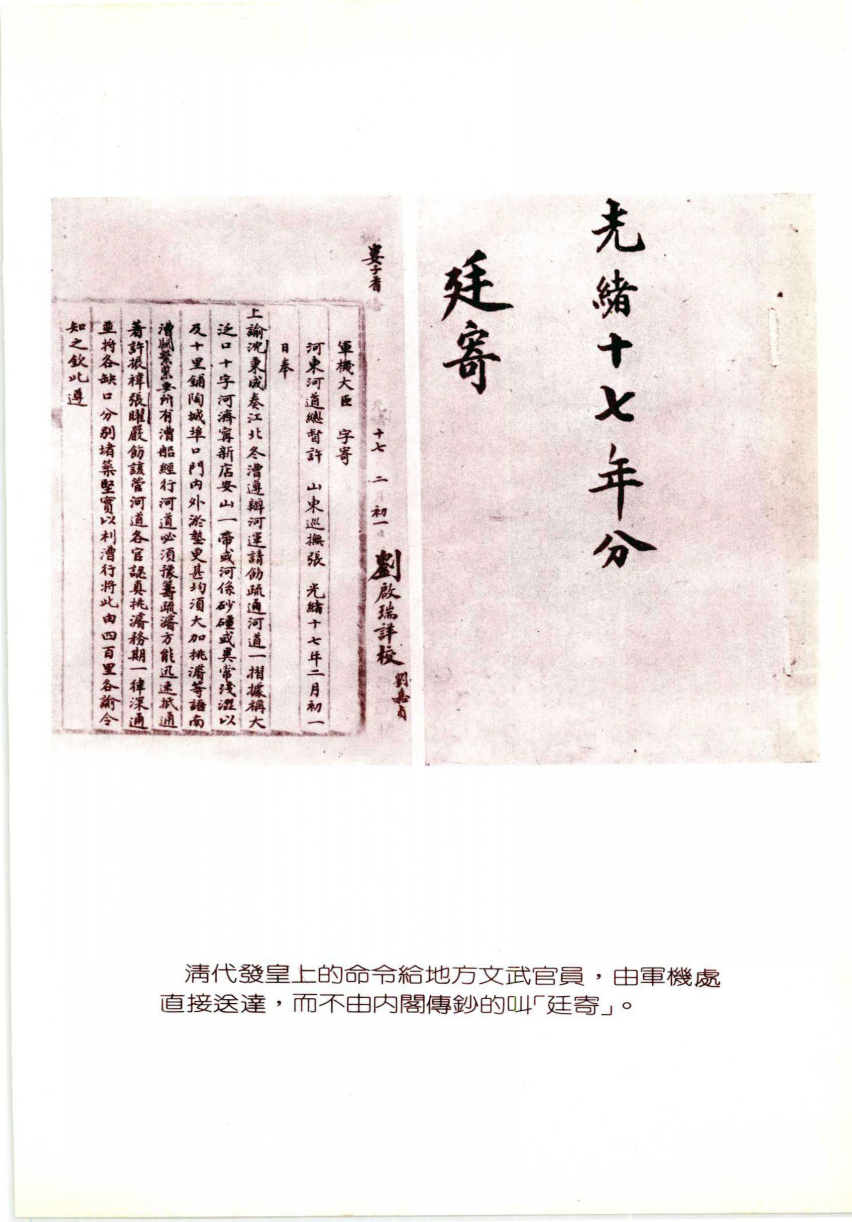 光緒十七年分
廷寄
十七 二 初一
劉啟瑞詳校
劉嘉
軍機大臣 字寄
河東河道總督許 山東巡撫張 光緒十七年二月初一
日奉
上諭沈秉成奏江北冬漕遵辦河運請飭疏通河道一摺據稱大
泛口十字河濟甯新店安山一帶或河係砂礓或異常淺澀以
及十里鋪陶城埠口門內外淤墊更甚均須大加挑濬等語南
漕關繫緊要所有漕船經行河道必須豫籌疏濬方能迅速抵通
著許振禕張曜嚴飭該管河道各官認真挑濬務期一律深通
並將各缺口分別堵築堅實以利漕行將此由四百里各諭令
知之欽此遵
清代發皇上的命令給地方文武官員，由軍機處
直接送達，而不由內閣傳鈔的叫「廷寄」。